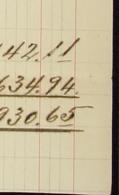 142.11
634.94.
930.65